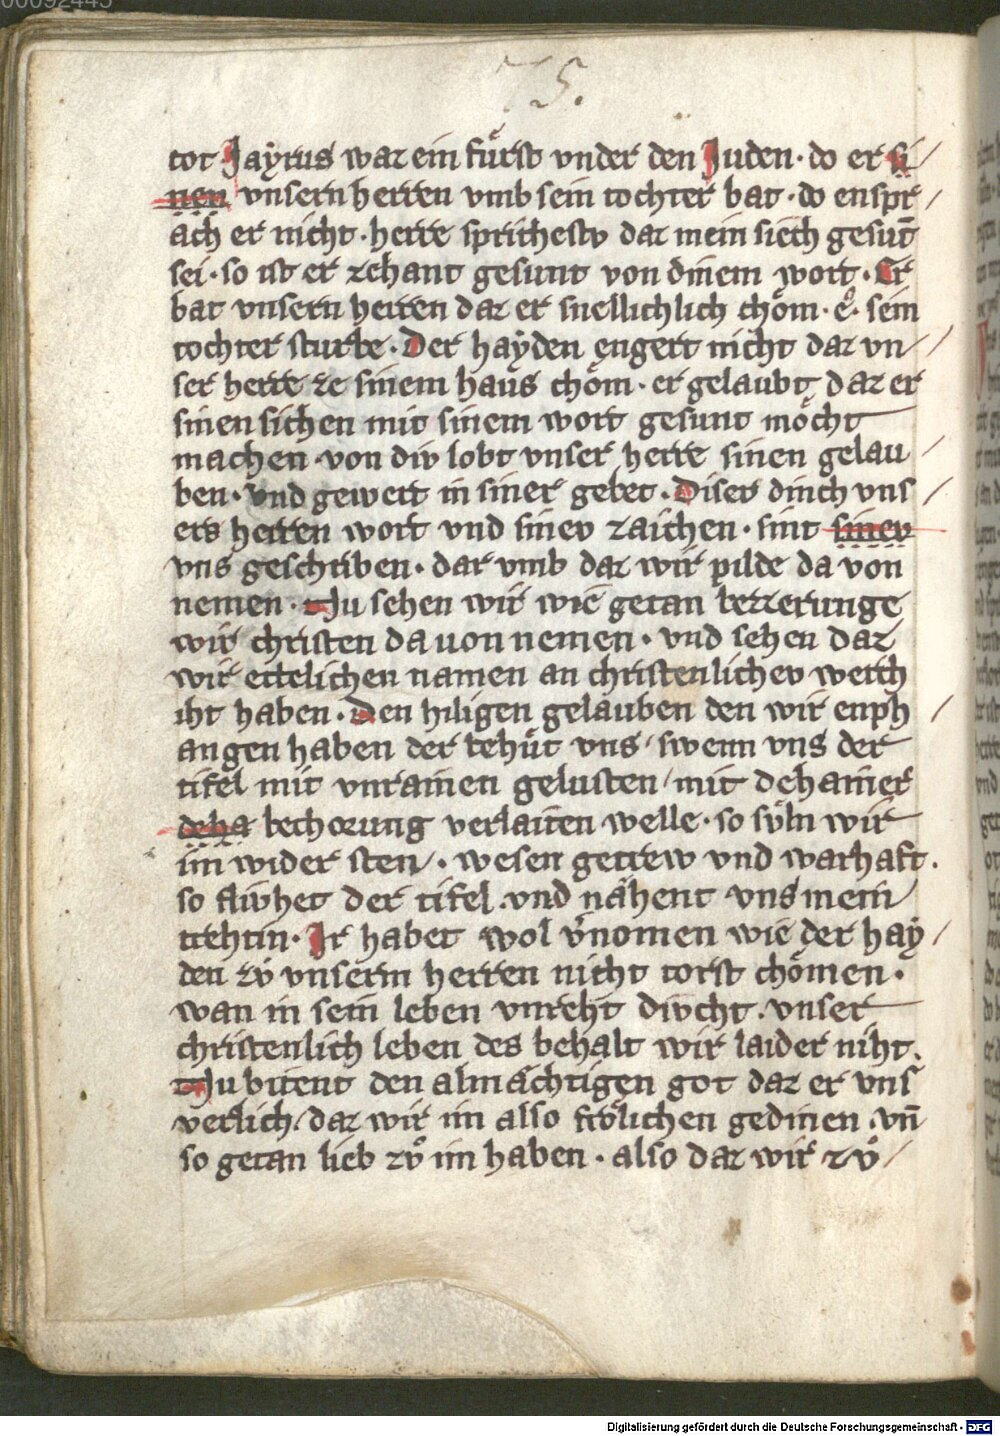 00092445
75.
tot Jayrus waz ein fu̇rst vnder den Juden · do er si/
nen vnsern herren vmb sein tochter bat · do enspr/
ach er nicht · herre sprichestv daz mein siech gesūt
sei · so ist er zehant gesunt von dinem wort · Er
bat vnsern herren daz er snellichlich chöm · e͛ · sein
tochter sturbe · Der hayden engert nicht daz vn/
ser herre ze sinem haus chöm · er gelaubt daz er
sinen sichen mit sinem wort gesunt möcht
machen · von div lobt vnser herre sinen gelau/
ben · vnd gewert in siner gebet · Disev dinch vns/
ers herren wort vnd sinev zaichen · sint sinev
vns geschriben · dar vmb daz wir pilde da von
nemen · Nu sehen wir wie getan bezzerunge
wir christen da uon nemen · vnd sehen daz
wir ettelichen namen an christenlichev werch
iht haben · Den hiligen gelauben den wir enph/
angen haben der behu̇t vns / swenn vns der
tifel mit vnrainen gelusten / mit dehainer
deha bechorung verlaiten welle · so sv̈ln wir
im wider sten / · wesen getrew vnd warhaft.
so flivhet der tifel · vnd nähent vns mein/
trehtin · Ir habet wol v̓nomen wie der hay/
den zv̊ vnserm herren nicht torst chömen ·
wan in sein leben vnreht dvcht · vnser
christenlich leben des behalt wir laider niht.
Nu bitent den almächtigen got daz er vns
verlich / daz wir im also frölichen gedinen · vn̄
so getan lieb zv̊ im haben · also daz wir zv̊ /
Digitalisierung gefördert durch die Deutsche Forschungsgemeinschaft - DFG